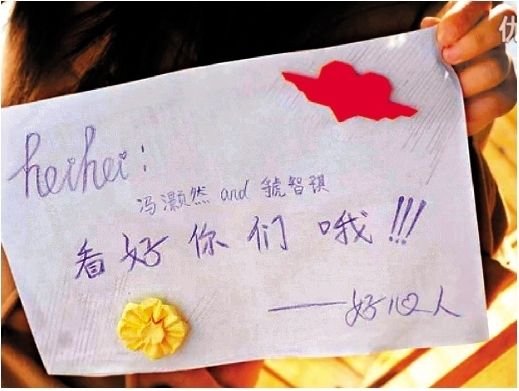 heihei:
冯灏然 and 虢智祺
看好你们哦!!!
——好心人
优